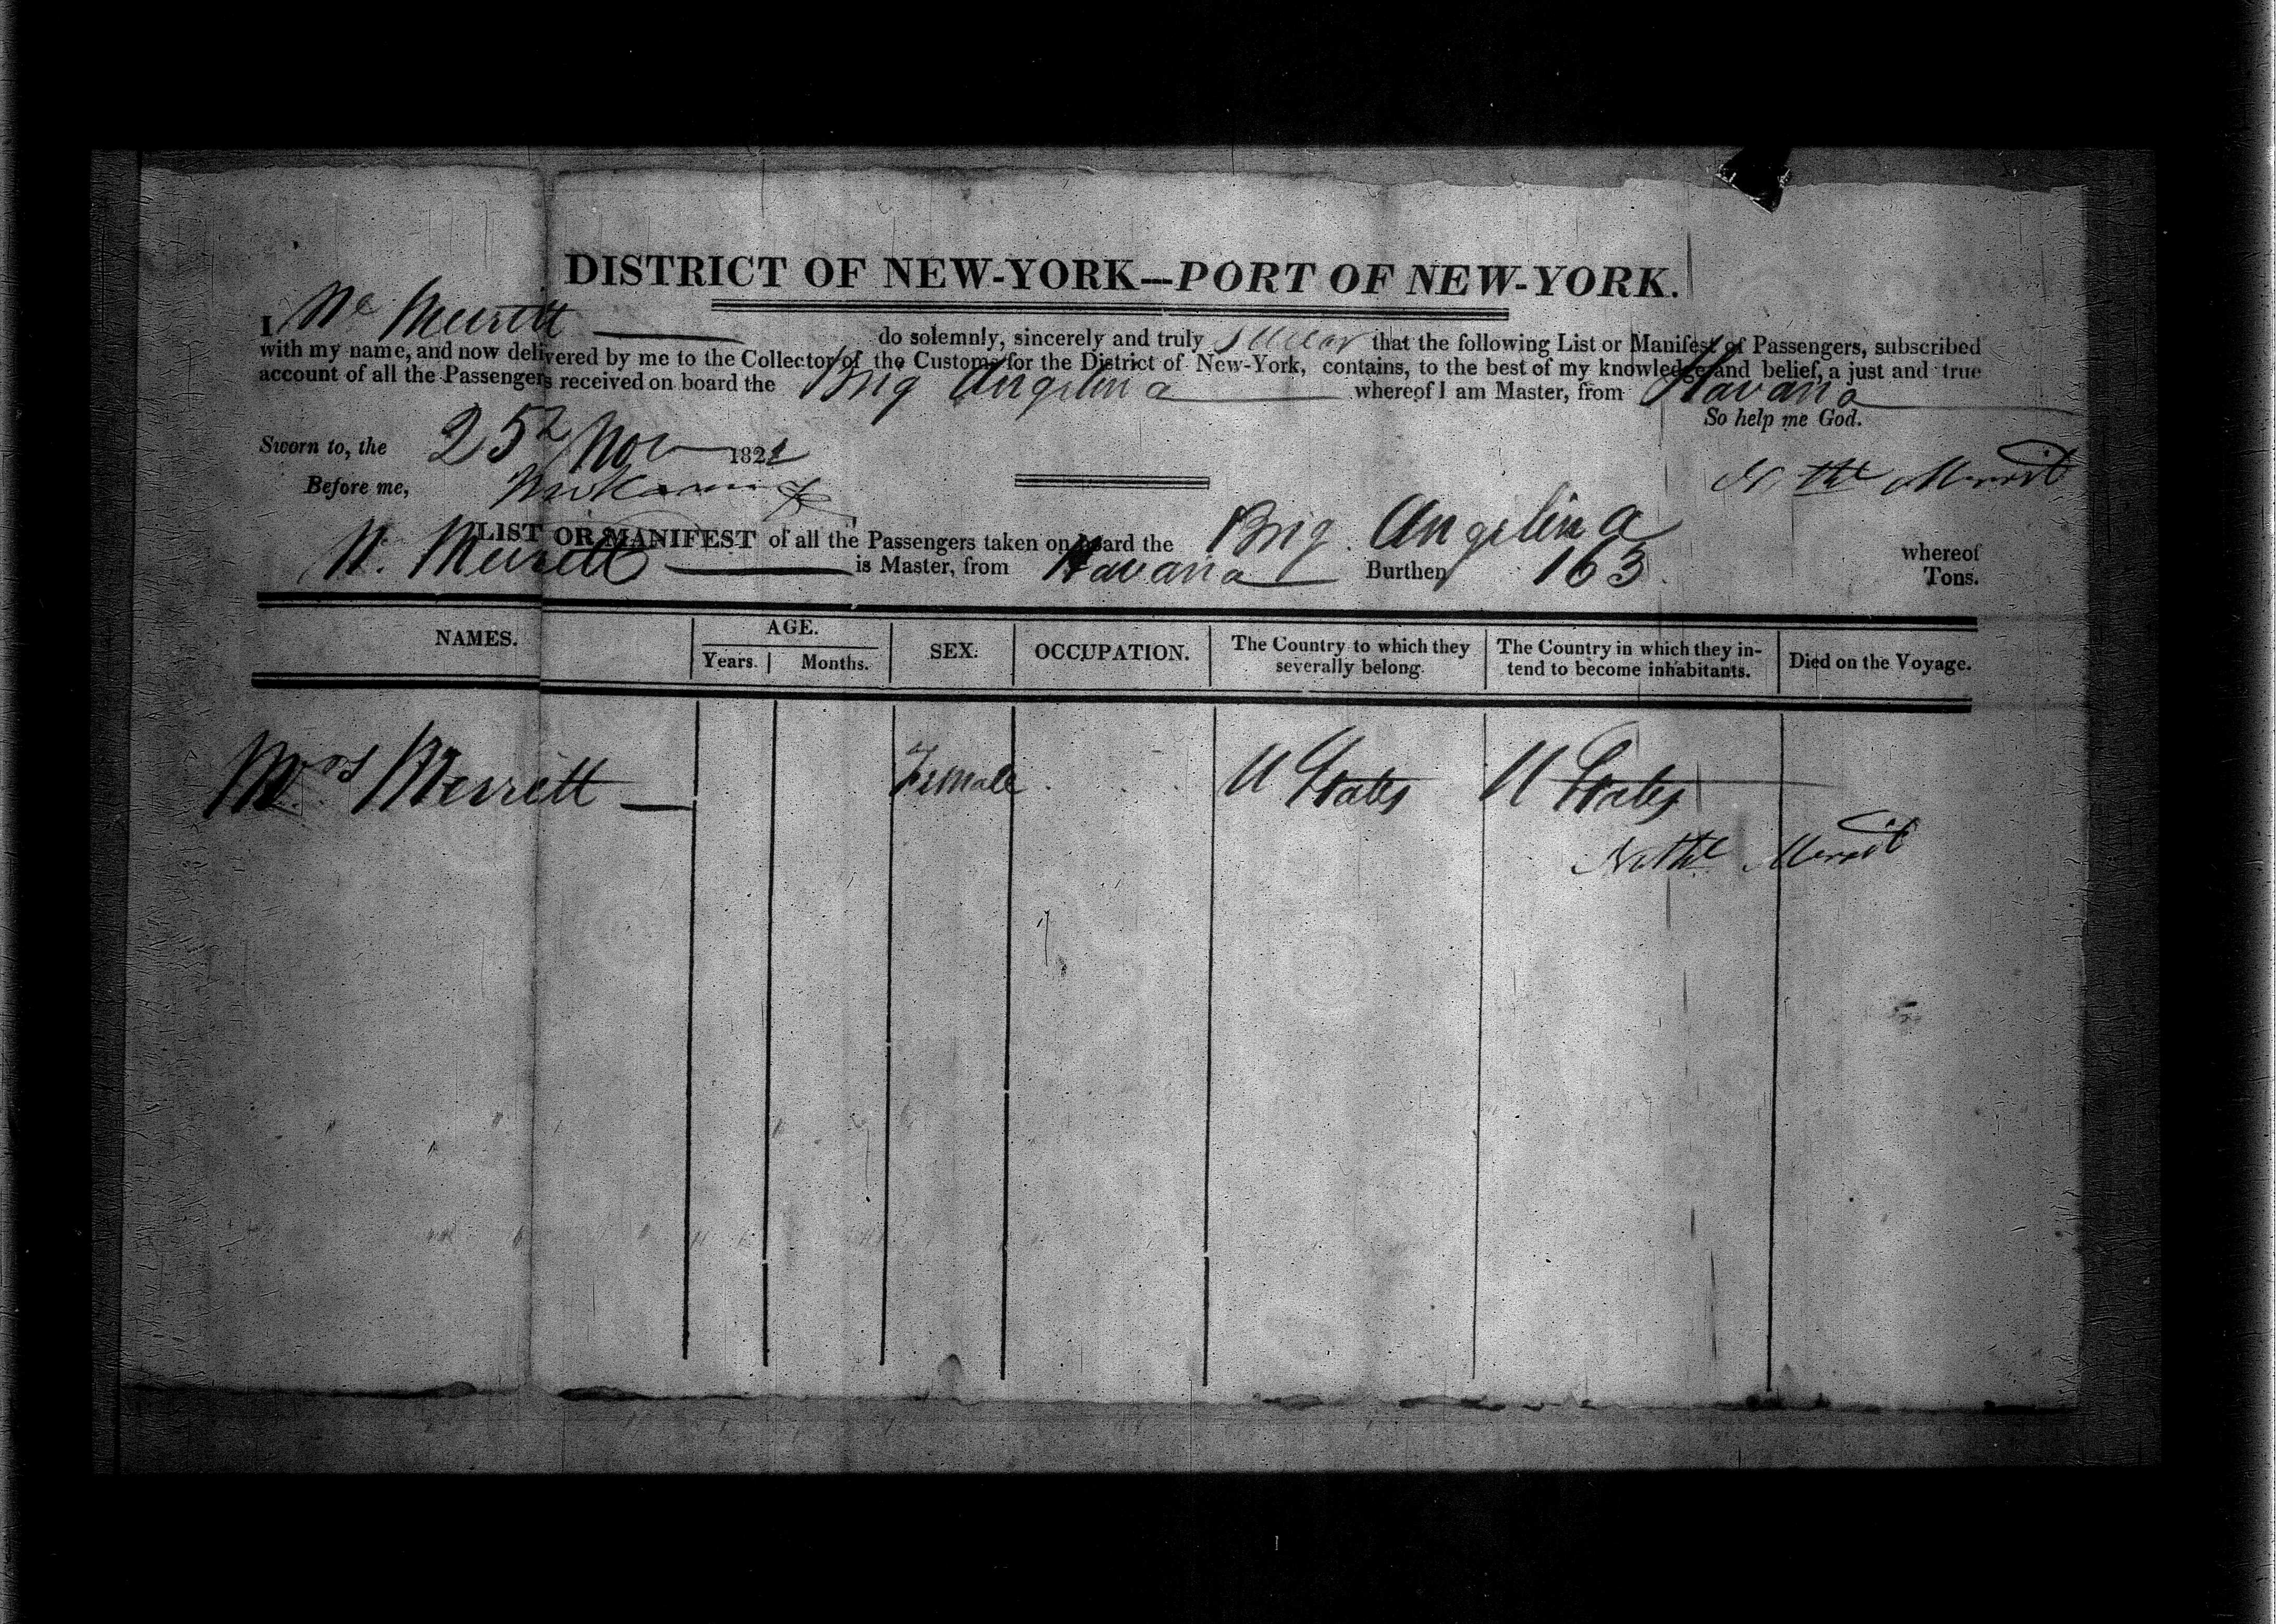 DISTRICT OF NEW-YORK---PORT OF NEW-YORK.
I N Merrett do solemnly, sincerely and truly swear that the following List or Manifest of Passengers, subscribed
with my name, and now delivered by me to the Collector of the Customs for the District of New-York, contains, to the best of my knowledge and belief, a just and true
account of all the Passengers received on board the Brig Angelina whereof I am Master, from Havana
So help me God.
Sworn to, the 25 Nov 182
Before me,
Nathl Merrit
LIST OR MANIFEST of all the Passengers taken on board the Brig Angelina whereof
N. Merrett is Master, from Havana Burthen 163 Tons.
NAMES. AGE. SEX. OCCUPATION. The Country to which they severally belong. The Country in which they in-tend to become inhabitants. Died on the Voyage.
Years. Months.
Mrs Merrett Female U States U States
Nathl Merrit